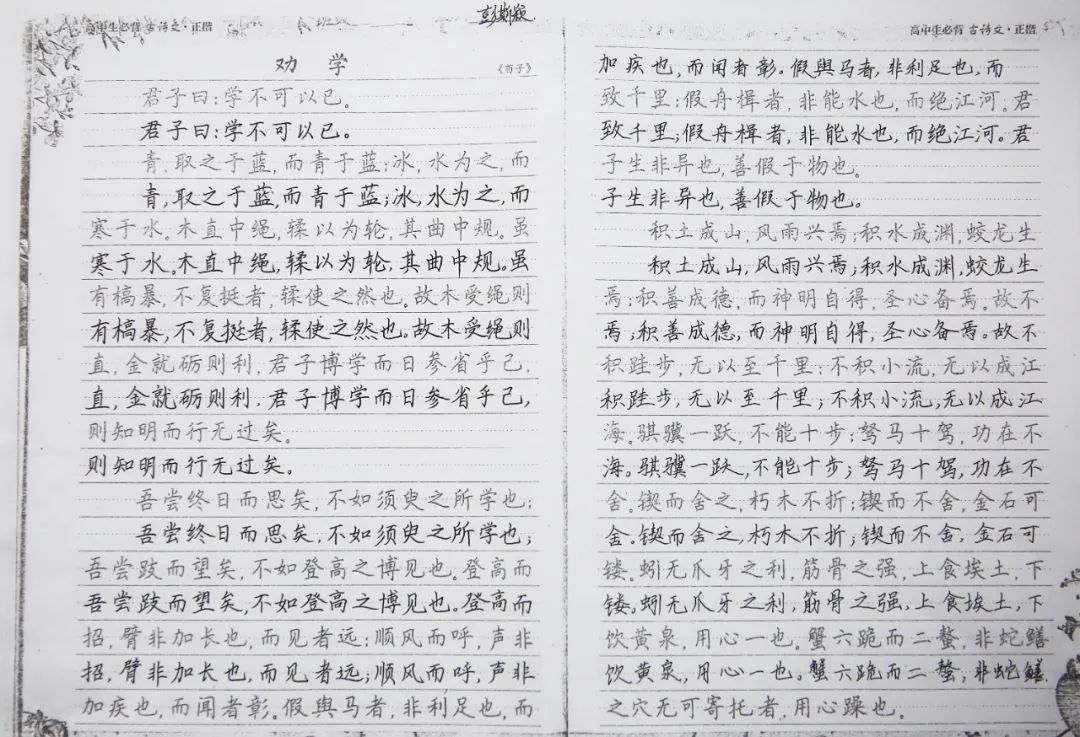 彭斯颖
高中生必背古诗文·正楷
劝学
《荀子》
君子曰:学不可以已。
君子曰:学不可以已。
青,取之于蓝,而青于蓝;冰,水为之,而
青,取之于蓝,而青于蓝;冰,水为之,而
寒于水。木直中绳,輮以为轮,其曲中规。虽
寒于水。木直中绳,輮以为轮,其曲中规。虽
有槁暴,不复挺者,輮使之然也。故木受绳则
有槁暴,不复挺者,輮使之然也。故木受绳则
直,金就砺则利,君子博学而日参省乎己,
直,金就砺则利,君子博学而日参省乎己,
则知明而行无过矣。
则知明而行无过矣。
吾尝终日而思矣,不如须臾之所学也;
吾尝终日而思矣,不如须臾之所学也;
吾尝跂而望矣,不如登高之博见也。登高而
吾尝跂而望矣,不如登高之博见也。登高而
招,臂非加长也,而见者远;顺风而呼,声非
招,臂非加长也,而见者远;顺风而呼,声非
加疾也,而闻者彰。假舆马者,非利足也,而
高中生必背古诗文·正楷
加疾也,而闻者彰。假舆马者,非利足也,而
致千里;假舟楫者,非能水也,而绝江河。君
致千里;假舟楫者,非能水也,而绝江河。君
子生非异也,善假于物也。
子生非异也,善假于物也。
积土成山,风雨兴焉;积水成渊,蛟龙生
积土成山,风雨兴焉;积水成渊,蛟龙生
焉;积善成德,而神明自得,圣心备焉。故不
焉;积善成德,而神明自得,圣心备焉。故不
积跬步,无以至千里;不积小流,无以成江
积跬步,无以至千里;不积小流,无以成江
海。骐骥一跃,不能十步;驽马十驾,功在不
海。骐骥一跃,不能十步;驽马十驾,功在不
舍。锲而舍之,朽木不折;锲而不舍,金石可
舍。锲而舍之,朽木不折;锲而不舍,金石可
镂。蚓无爪牙之利,筋骨之强,上食埃土,下
镂。蚓无爪牙之利,筋骨之强,上食埃土,下
饮黄泉,用心一也。蟹六跪而二螯,非蛇鳝
饮黄泉,用心一也。蟹六跪而二螯,非蛇鳝
之穴无可寄托者,用心躁也。